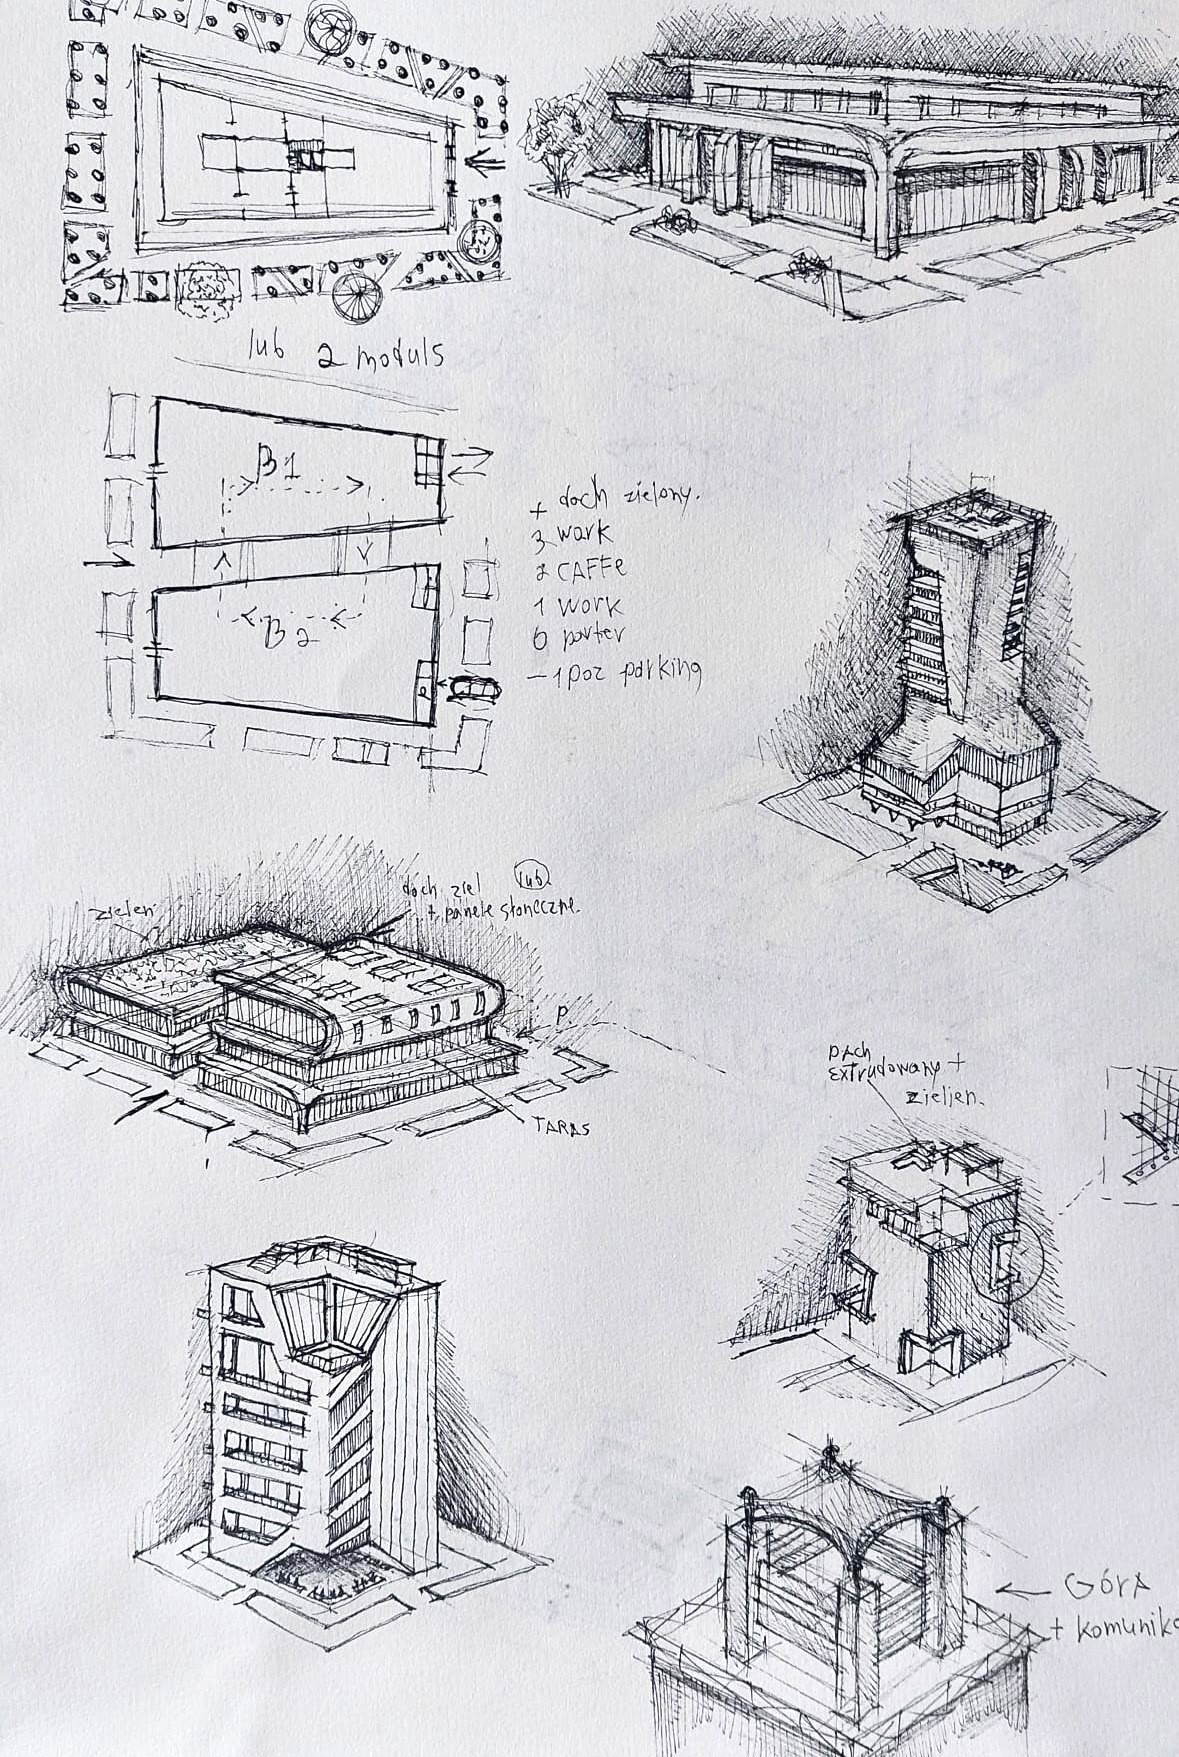 lub 2 moduls
B1
B2
+ dach zielony.
3 work
2 CAFFe
1 work
0 parter
-1 poz parking
P
zieleń
dach ziel lub
+ panele słoneczne.
P.
TARAS
DACH
extrudowany +
zieljen.
← GÓRA
+ komunika